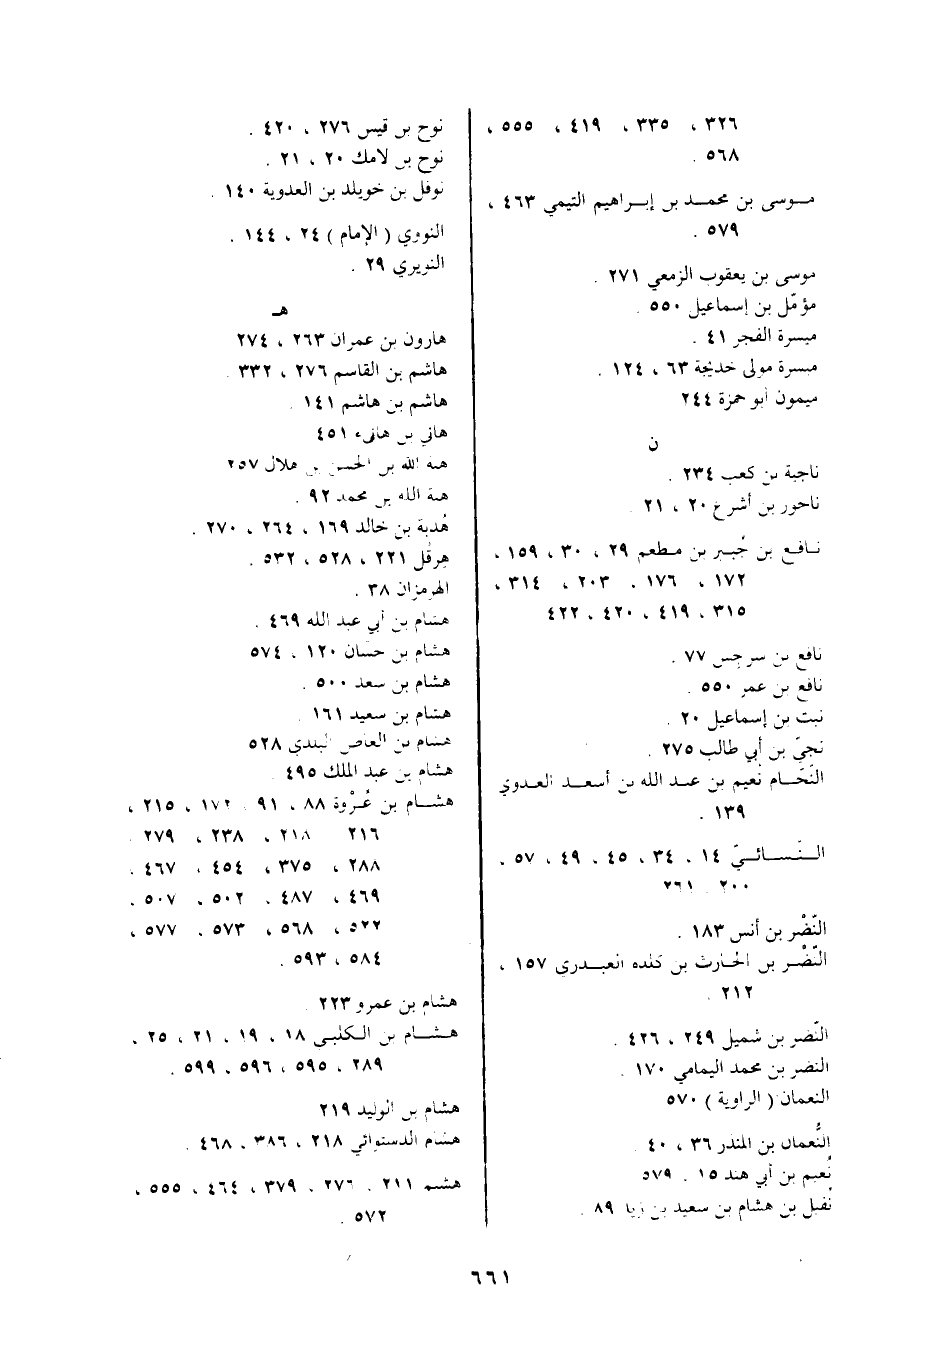 ٣٢٦ ، ٣٣٥ ، ٤١٩ ، ٥٥٥ ،
٥٦٨ .
مـوسى بن محمـد بن إبـراهيم التيمي ٤٦٣ ،
٥٧٩ .
موسى بن يعقوب الزمعي ٢٧١ .
مؤمّل بن إسماعيل ٥٥٠ .
ميسرة الفجر ٤١ .
ميسرة مولى خديجة ٦٣ ، ١٢٤ .
ميمون أبو حمزة ٢٤٤
ن
ناجية بن كعب ٢٣٤ .
ناحور بن أشرع ٢٠ ، ٢١ .
نـافـع بن جُبـير بن مـطعم ٢٩ ، ٣٠ ، ١٥٩ ،
١٧٢ ، ١٧٦ . ٢٠٣ ، ٣١٤ ،
٣١٥ ، ٤١٩ ، ٤٢٠ ، ٤٢٢
نافع بن سرجس ٧٧ .
نافع بن عمر ٥٥٠ .
نبت بن إسماعيل ٢٠ .
نجيّ بن أبي طالب ٢٧٥ .
النّحّـام نُعيم بن عبـد الله بن أسعـد العـدوي
١٣٩ .
النّـسـائـيّ ١٤ ، ٣٤ ، ٤٥ ، ٤٩ ، ٥٧ ،
٢٠٠ . ٢٦١
النّضْر بن أنس ١٨٣ .
النّضْـر بن الحـارث بن كلده العبـدري ١٥٧ ،
٢١٢ .
النّضر بن شميل ٢٤٩ ، ٤٢٦ .
النضر بن محمد اليمامي ١٧٠ .
النعمان ( الراوية ) ٥٧٠
النُّعمان بن المنذر ٣٦ ، ٤٠ .
نُعيم بن أبي هند ١٥ . ٥٧٩
نُفيل بن هشام بن سعيد بن ٨٩ .
نوح بن قيس ٢٧٦ ، ٤٢٠ .
نوح بن لامك ٢٠ ، ٢١ .
نوفل بن خويلد بن العدوية ١٤٠ .
النووي ( الإمام ) ٢٤ ، ١٤٤ .
النويري ٢٩ .
هـ
هارون بن عمران ٢٦٣ ، ٢٧٤
هاشم بن القاسم ٢٧٦ ، ٣٣٢ .
هاشم بن هاشم ١٤١ .
هاني بن هانىء ٤٥١
هبة الله بن الحسن بن هلال ٢٥٧
هبة الله بن محمد ٩٢ .
هُدبة بن خالد ١٦٩ ، ٢٦٤ ، ٢٧٠ .
هِرقل ٢٢١ ، ٥٢٨ ، ٥٣٢ .
الهرمزان ٣٨ .
هشام بن أبي عبد الله ٤٦٩ .
هشام بن حسّان ١٢٠ ، ٥٧٤
هشام بن سعد ٥٠٠ .
هشام بن سعيد ١٦١ .
هشام بن العاص ٥٢٨
هشام بن عبد الملك ٤٩٥ .
هشـام بن عُـرْوة ٨٨ ، ٩١ . ١٧٢ ، ٢١٥ ،
٢١٦ ٢١٨ ، ٢٣٨ ، ٢٧٩ .
٢٨٨ ، ٣٧٥ ، ٤٥٤ ، ٤٦٧ .
٤٦٩ ، ٤٨٧ . ٥٠٢ ، ٥٠٧ .
٥٢٢ ، ٥٦٨ ، ٥٧٣ . ٥٧٧ ،
٥٨٤ ، ٥٩٣ .
هشام بن عمرو ٢٢٣ .
هشـام بن الـكلبـي ١٨ ، ١٩ ، ٢١ ، ٢٥ ،
٢٨٩ ، ٥٩٥ ، ٥٩٦ ، ٥٩٩ .
هشام بن الوليد ٢١٩
هشام الدستوائي ٢١٨ ، ٣٨٦ ، ٤٦٨ .
هشيم ٢١١ . ٢٧٦ . ٣٧٩ ، ٤٦٤ ، ٥٥٥ ،
٥٧٢ .
٦٦١